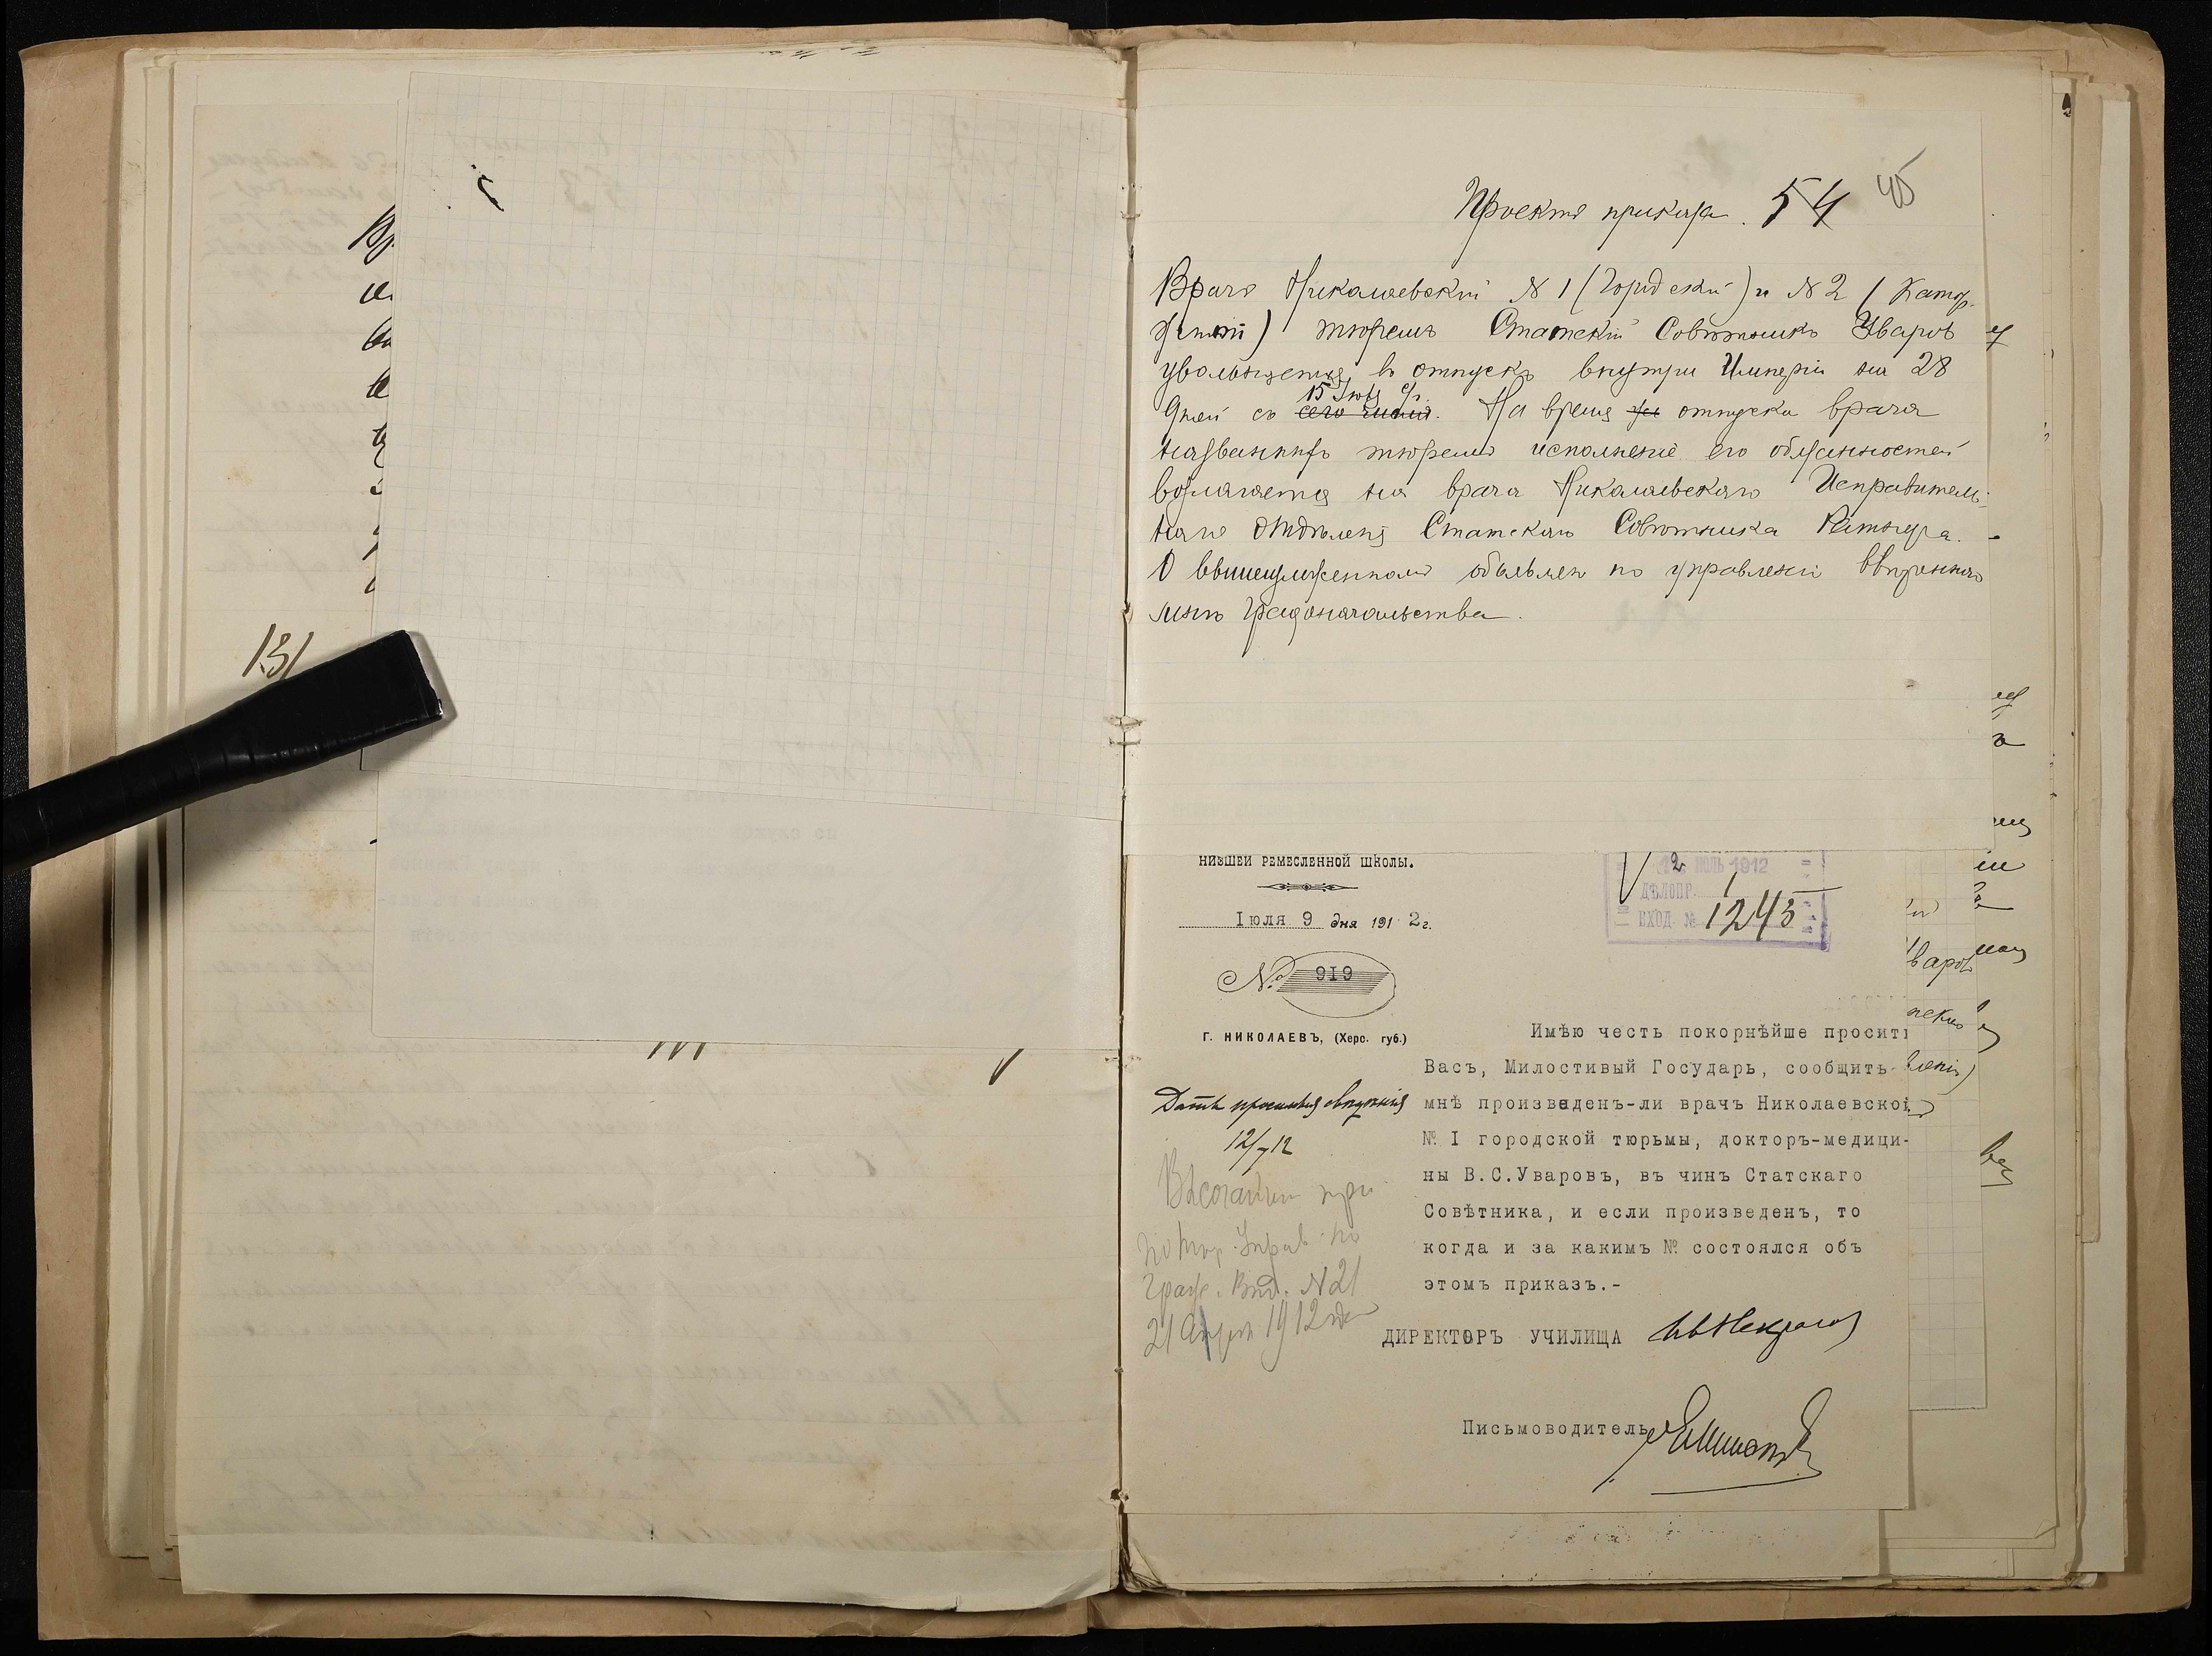 131
Проектъ приказа. 54 45
Врачъ Николаевской № 1 (Городской) и № 2 (Катор-
жной) тюремъ Статскій Совѣтникъ Уваровъ
увольняется въ отпускъ внутри Имперіи на 28
15 Іюля с/г.
дней съ сего числа. На время отпуска врача
названныхъ тюремъ исполненіе его обязанностей
возлагается на врача Николаевскаго Исправитель-
наго Отдѣленія Статскаго Совѣтника
О вышеизложенномъ объявляю по управленію ввѣреннаго
мнѣ Градоначальства.
НИЗШЕЙ РЕМЕСЛЕННОЙ ШКОЛЫ.
12 ІЮЛЬ 1912
ДѢЛОПР. 1
ВХОД. № 1243
Іюля 9 дня 1912г.
№ 919
Г. НИКОЛАЕВЪ, (Херс. губ.)
Имѣю честь покорнѣйше просить
Васъ, Милостивый Государь, сообщить
мнѣ произведенъ-ли врачъ Николаевской
№ I городской тюрьмы, докторъ-медици-
ны В.С.Уваровъ, въ чинъ Статскаго
Совѣтника, и если произведенъ, то
когда и за какимъ № состоялся объ
этомъ приказъ.-
Дать просимыя свѣдѣнія
12/7 12
Граж. Вѣд. № 21
21 Апреля 1912 года
ДИРЕКТОРЪ УЧИЛИЩА
Письмоводитель